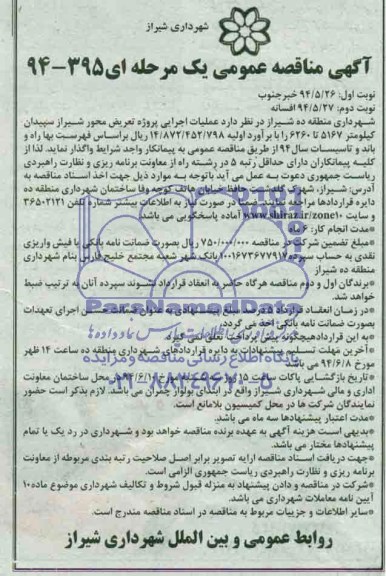 شهرداری شیراز
آگهی مناقصه عمومی یک مرحله ای ۳۹۵-۹۴
نوبت اول: ۹۴/۵/۲۶ خبرجنوب
نوبت دوم: ۹۴/۵/۲۷ افسانه
شهرداری منطقه ده شیراز در نظر دارد عملیات اجرایی پروژه تعریض محور شیراز سپیدان
کیلومتر ۵۱۶۷ تا ۶۲۶۰ را با برآورد اولیه ۱۴/۸۷۲/۴۵۲/۷۹۸ ریال براساس فهرست بها راه و
باند و تاسیسات سال ۹۴ از طریق مناقصه عمومی به پیمانکار واجد شرایط واگذار نماید. لذا از
کلیه پیمانکاران دارای حداقل رتبه ۵ در رشته راه از معاونت برنامه ریزی و نظارت راهبردی
ریاست جمهوری دعوت به عمل می آید باتوجه به موارد ذیل جهت اخذ اسناد مناقصه به
آدرس: شیراز، شهرک گلدشت حافظ خیابان هاتف کوچه وفا ساختمان شهرداری منطقه ده
دایره قراردادها مراجعه نمایند. ضمنا در صورت نیاز به اطلاعات بیشتر شماره تلفن ۳۶۵۰۲۱۲۱
و سایت www.shiraz.ir/zone10 آماده پاسخگویی می باشد.
*مدت انجام کار: ۶ ماه
*مبلغ تضمین شرکت در مناقصه ۷۵۰/۰۰۰/۰۰۰ ریال بصورت ضمانت نامه بانکی یا فیش واریزی
نقدی به حساب سپرده ۱۰۰۱۶۷۳۶۷۷۹۱۷ بانک شهر شعبه مجتمع خلیج فارس بنام شهرداری
منطقه ده شیراز
*برندگان اول و دوم مناقصه هرگاه حاضر به انعقاد قرارداد نشوند سپرده آنان به ترتیب ضبط
خواهد شد.
*در زمان انعقاد قرارداد ۵ درصد مبلغ پیشنهادی به عنوان ضمانت حسن اجرای تعهدات
بصورت ضمانت نامه بانکی اخذ می گردد.
*به این قرارداد هیچگونه پیش پرداخت تعلق نمی گیرد.
*آخرین مهلت تسلیم پیشنهادات به دایره قراردادهای شهرداری منطقه ده ساعت ۱۴ ظهر
مورخ ۹۴/۶/۸ می باشد.
*تاریخ بازگشایی پاکات ساعت ۱۵ روز مورخ در محل ساختمان معاونت
اداری و مالی شهرداری شیراز واقع در ابتدای بولوار چمران می باشد. لازم بذکر است حضور
نمایندگان شرکت ها در محل کمیسیون بلامانع است.
*مدت اعتبار پیشنهادها سه ماه می باشد.
*بدیهی است هزینه آگهی به عهده برنده مناقصه خواهد بود و شهرداری در رد یک یا تمام
پیشنهادها مختار می باشد.
*جهت دریافت اسناد مناقصه ارایه تصویر برابر اصل صلاحیت رتبه بندی مربوطه از معاونت
برنامه ریزی و نظارت راهبردی ریاست جمهوری الزامی است.
*شرکت در مناقصه و دادن پیشنهاد به منزله قبول شروط و تکالیف شهرداری موضوع ماده ۱۰
آیین نامه معاملات شهرداری می باشد.
*سایر اطلاعات و جزییات مربوط به مناقصه در اسناد مناقصه مندرج است.
روابط عمومی و بین الملل شهرداری شیراز
ParsNamadData
پایگاه اطلاع رسانی مناقصه و مزایده
۰۲۱-۸۸۳۴۹۶۷۰-۵